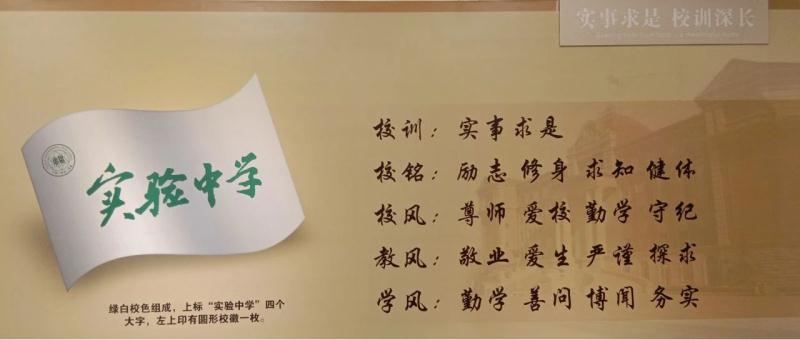 实事求是 校训深长
实验中学
校训：实事求是
校铭：励志 修身 求知 健体
校风：尊师 爱校 勤学 守纪
教风：敬业 爱生 严谨 探求
学风：勤学 善问 博闻 务实
绿白校色组成，上标“实验中学”四个
大字，左上印有圆形校徽一枚。